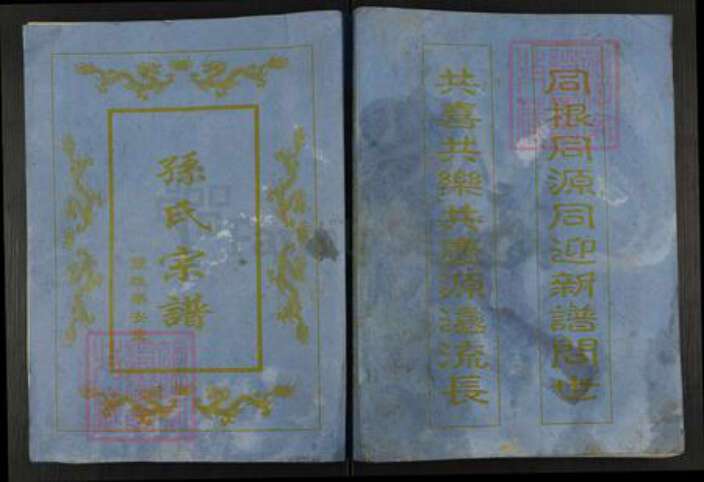 孫氏宗譜
同根同源同迎新譜問世
共喜共樂共慶源遠流長